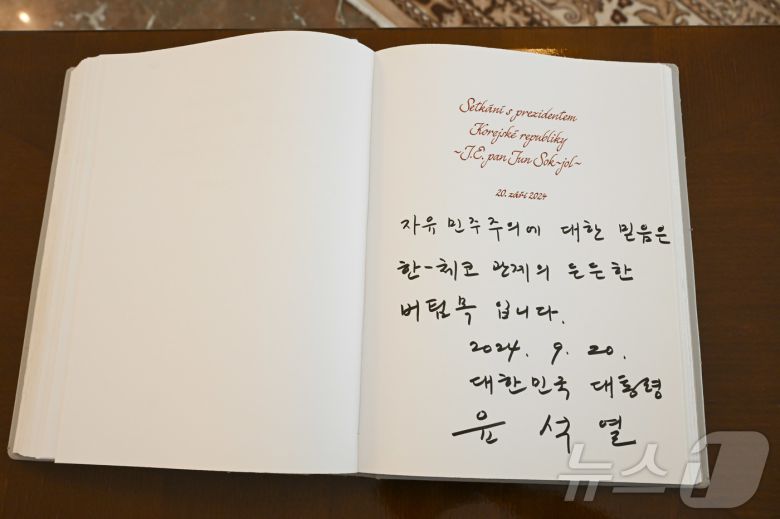 Setkání s prezidentem
Korejské republiky
~J.E. pan Jun Sok-jol~
20. září 2024
자유 민주주의에 대한 믿음은
한-체코 관계의 든든한
버팀목 입니다.
2024. 9. 20.
대한민국 대통령
윤 석 열
뉴스1